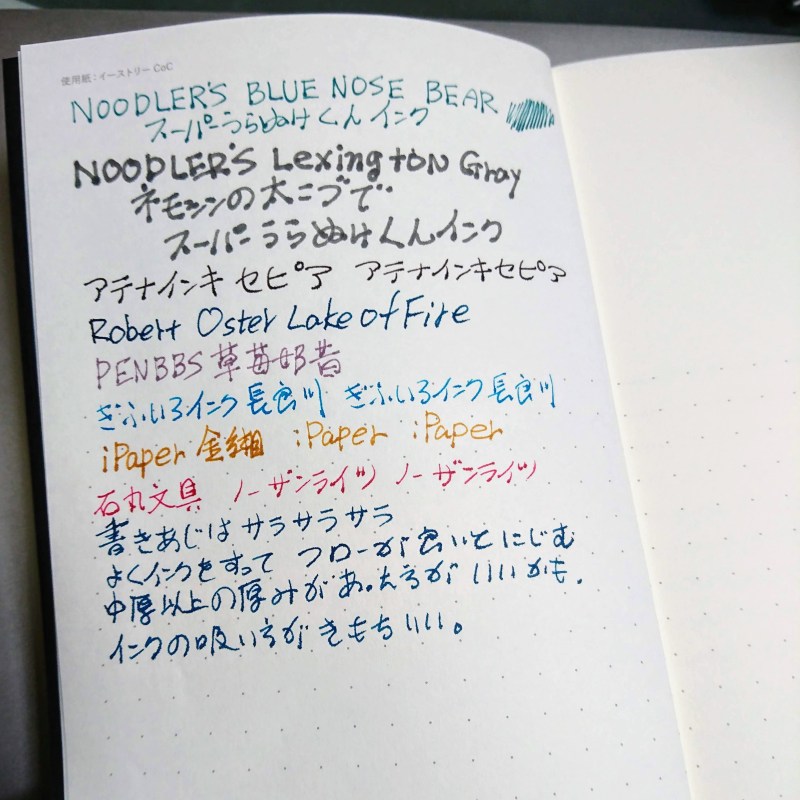 使用紙：イーストリー CoC
NOODLER'S BLUE NOSE BEAR
スーパーうらぬけくんインク
NOODLER'S Lexington Gray
ネモシンの太ニブで
スーパーうらぬけくんインク
アテナインキ セピア アテナインキセピア
Robert Oster Lake of Fire
PENBBS 草莓奶昔
ぎふいろインク 長良川 ぎふいろインク 長良川
iPaper 金 iPaper iPaper
石丸文具 ノーザンライツ ノーザンライツ
書きあじは サラサラサラ
よくインクをすって フローが良いとにじむ
中厚以上の厚みがあった方が いいかも.
インクの吸い方が きもちいい。